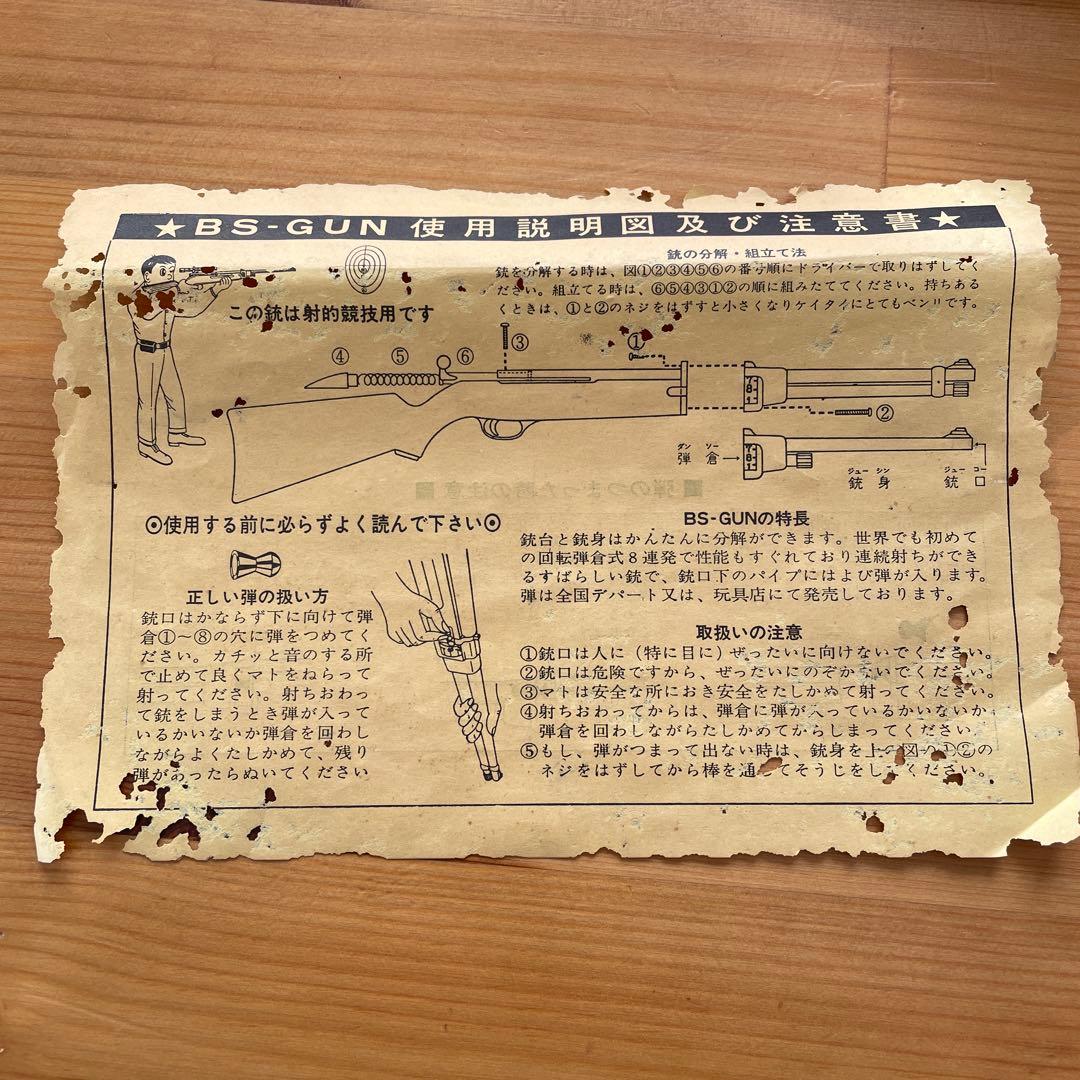 ★BS-GUN 使用説明図及び注意書★
この銃は射的競技用です
銃の分解・組立て法
銃を分解する時は、図①②③④⑤⑥の番号順にドライバーで取りはずしてく
ださい。組立てる時は、⑥⑤④③①②の順に組みたててください。持ちある
くときは、①と②のネジをはずすと小さくなりケイタイにとてもベンリです。
④ ⑤ ⑥ ③ ①
7
8
1
②
ダン ソー
弾 倉→
7
8
1
ジュー シン
銃 身
ジュー コー
銃 口
■弾のつまった時の注意■
⊙使用する前に必らずよく読んで下さい⊙
正しい弾の扱い方
銃口はかならず下に向けて弾
倉①〜⑧の穴に弾をつめてく
ださい。カチッと音のする所
で止めて良くマトをねらって
射ってください。射ちおわっ
て銃をしまうとき弾が入って
いるかいないか弾倉を回わし
ながらよくたしかめて、残り
弾があったらぬいてください
BS-GUNの特長
銃台と銃身はかんたんに分解ができます。世界でも初めて
の回転弾倉式8連発で性能もすぐれており連続射ちができ
るすばらしい銃で、銃口下のパイプにはよび弾が入ります。
弾は全国デパート又は、玩具店にて発売しております。
取扱いの注意
①銃口は人に(特に目に)ぜったいに向けないでください。
②銃口は危険ですから、ぜったいにのぞかないでください。
③マトは安全な所におき安全をたしかめて射ってください。
④射ちおわってからは、弾倉に弾が入っているかいないか
弾倉を回わしながらたしかめてからしまってください。
⑤もし、弾がつまって出ない時は、銃身を上の図の①②の
ネジをはずしてから棒を通してそうじをしてください。